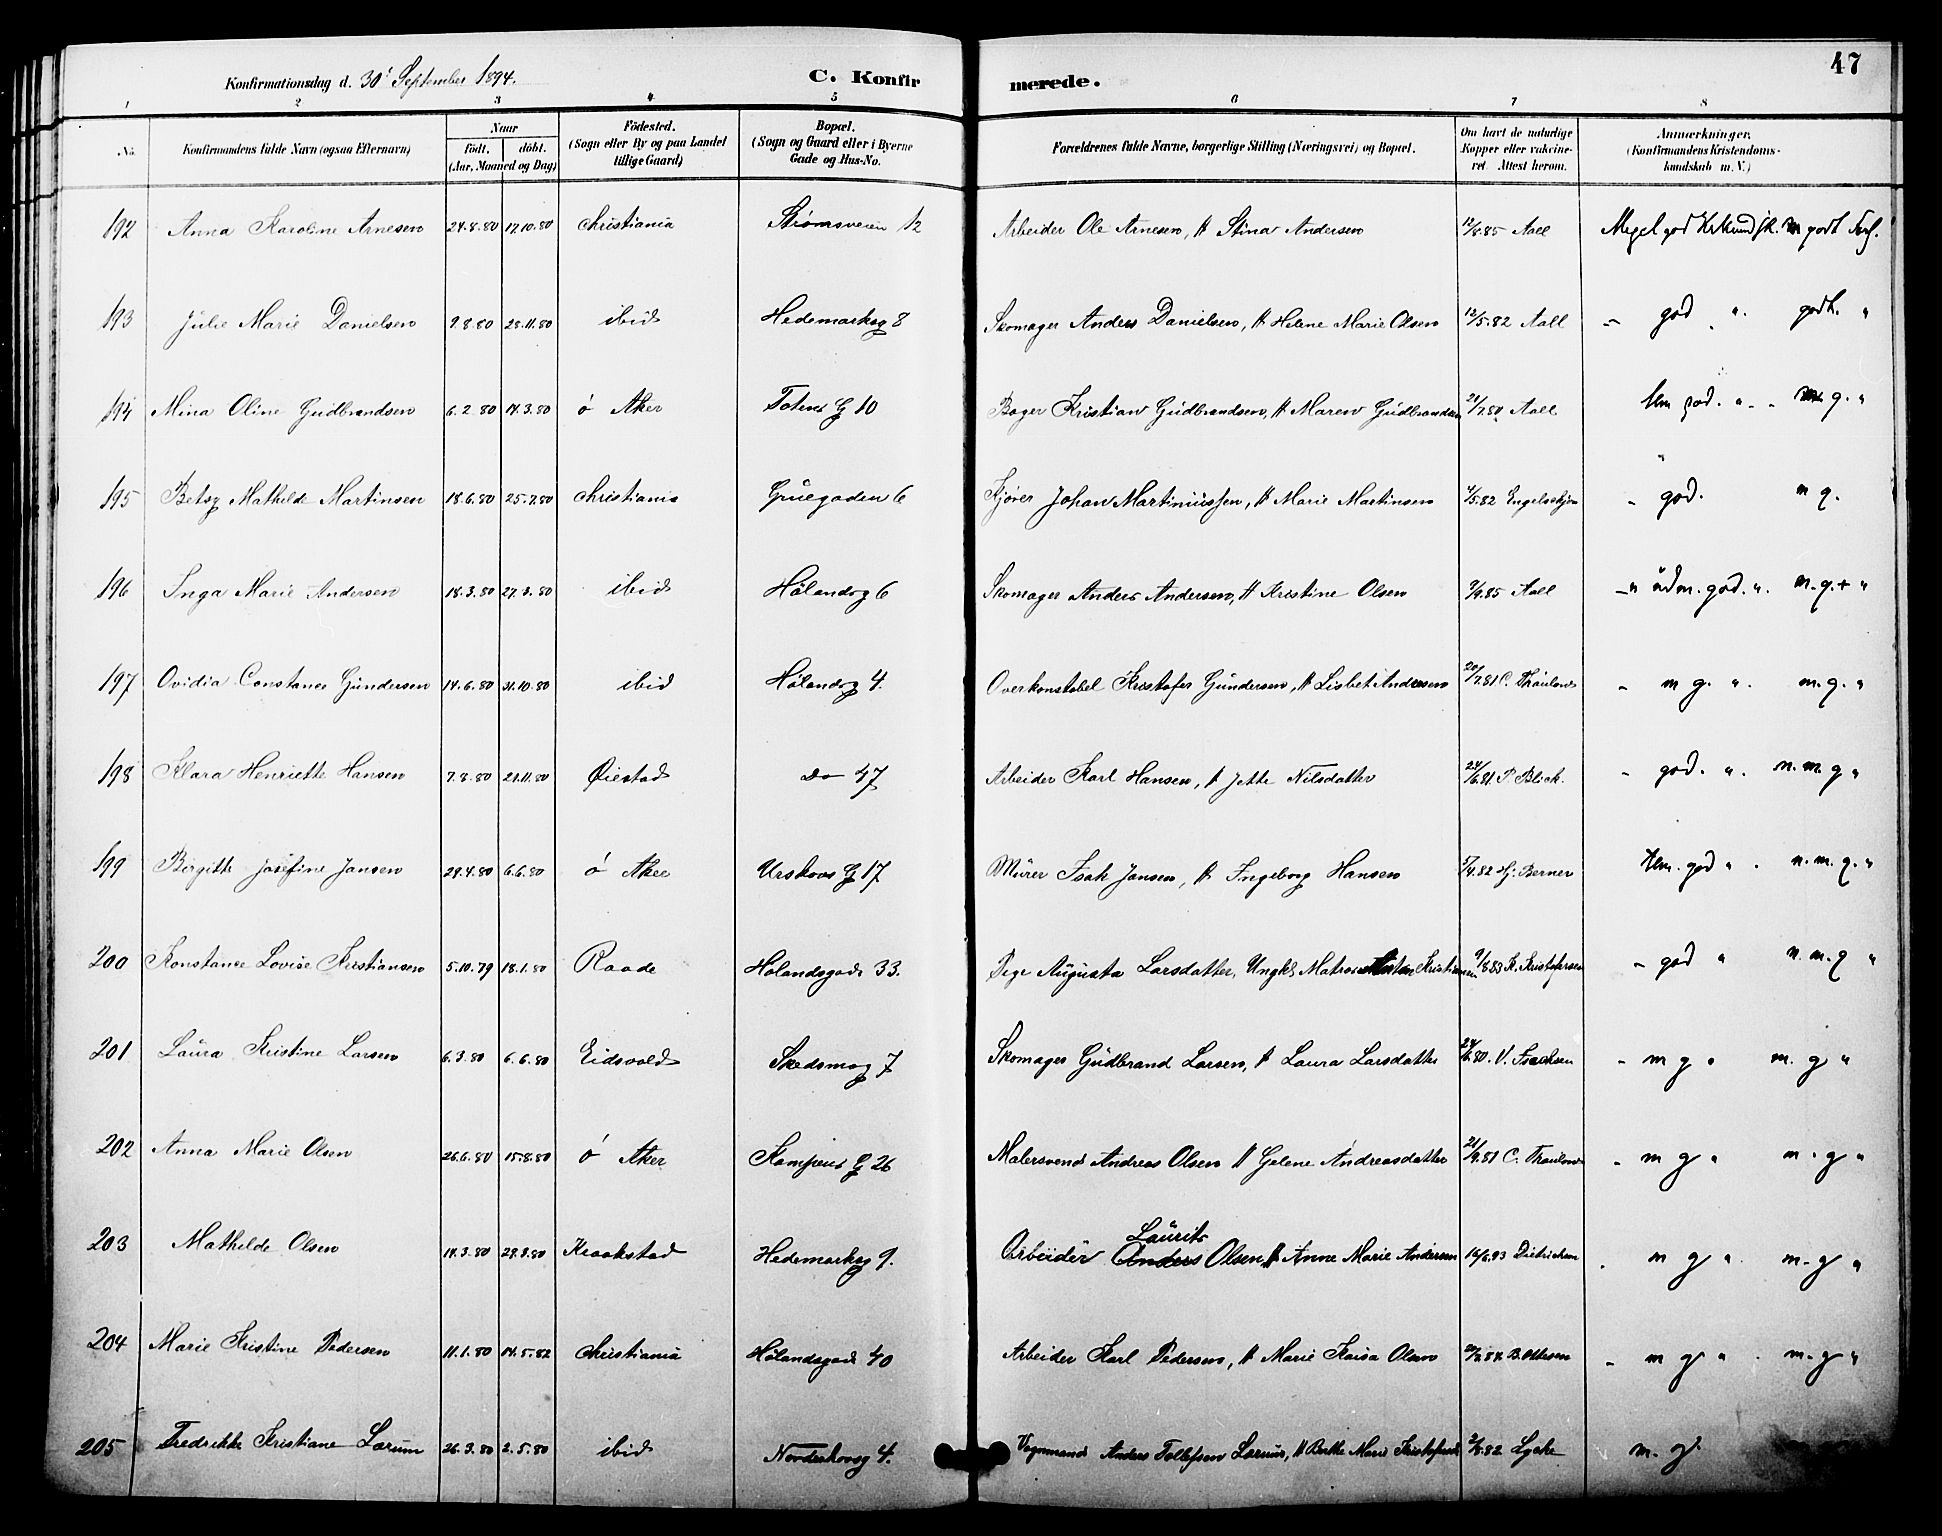 47
Konfirmationsdag d. 30' September 1894. C. Konfirmerede.
1 2 3 4 5 6 7 8
No. Konfirmandens fulde Navn (ogsaa Efternavn) Naar födt, döbt. (Aar, Maaned og Dag) Födested. (Sogn eller By og paa Landet tillige Gaard) Bopæl. (Sogn og Gaard eller i Byerne Gade og Hus-No. Forældrenes fulde Navne, borgerlige Stilling (Næringsvei) og Bopæl. Om havt de naturlige Kopper eller vakcineret. Attest herom. Anmærkninger. (Konfirmandens Kristendomskundskab m. V.)
192 Anna Karoline Arnesen 24.8.80 17.10.80 Christiania Strömsveien 12 Arbeider Ole Arnesen, H Stina Andersen 12/8.85 Aall Meget god Krkundsk. m godt Forh.
193 Julie Marie Danielsen 9.8.80 28.11.80 ibid Hedemarksg 8 Skomager Anders Danielsen, H Helene Marie Olsen 12/5.82 Aall - god " godt. "
194 Mina Oline Gudbrandsen 6.2.80 14.3.80 ö Aker Totens G 10 Bager Kristian Gudbrandsen, H Maren Gudbrandsen 21/7.80 Aall tem god. " - m g. "
195 Betsy Mathilde Martinsen 18.6.80 25.7.80 Christiania Gruegaden 6 Kjörer Johan Martiniussen, H Marie Martinsen 4/5.82 Engelskjön - god. m g.
196 Inga Marie Andersen 18.3.80 27.3.80 ibid Hölandsg 6 Skomager Anders Andersen, H Kristine Olsen 9/9.85 Aall - " udm. god. ". m. g. + "
197 Ovidia Constance Gundersen 14.6.80 31.10.80 ibid Hölandsg 4. Overkonstabel Kristofer Gundersen, H Lisbet Andresen 20/7.81 C. Thaulow - m g. ". m. g. "
198 Klara Henriette Hansen 7.8.80 21.11.80 Øiestad Do 47 Arbeider Karl Hansen, H Jette Nilsdatter 24/6.81. P. Blick. - god. ". n. m. g "
199 Birgitte Josefine Jansen 29.4.80 6.6.80 ö Aker Urskovs G 17 Murer Isak Jansen, H Ingeborg Hansen 5/4.82 Hj. Berner tem. god ". n. m. g. "
200 Konstance Lovise Kristiansen 5.10.79 18.1.80 Raade Hölandsgade 33. Pige Augusta Larsdatter, Ungk. Matros Anton Kristiansen 9/8.83 K. Kristofersen - god " n. m. g "
201 Laura Kristine Larsen 6.3.80 6.6.80 Eidsvold Skedsmog 7 Skomager Gudbrand Larsen, H Laura Larsdatter 24/6.80. V. Isachsen - m g " m. g "
202 Anna Marie Olsen 26.6.80 15.8.80 ö Aker Kampens G 26 Malersvend Andreas Olsen H Gelene Andreasdatter 21/9.81 C. Thaulow - m g " m. g "
203 Mathilde Olsen 14.3.80 29.3.80 Kraakstad Hedemarksg 9. Arbeider Anders Laurits Olsen, H Anne Marie Andersen 16/6.93 Dietrichson . m g ". m. g "
204 Marie Kristine Pedersen 11.1.80 14.5.82 Christiania Hölandsgade 40 Arbeider Karl Pedersen, H Marie Kaisa Olsen B. Ottesen - m g " . m. g "
205 Fredrikke Kristiane Lorum 26.3.80 2.5.80 ibid Norderhovsg 4. Vognmand Anders Tollefsen Lorum, H Berthe Marie 2/8.82 Lyche m. g.